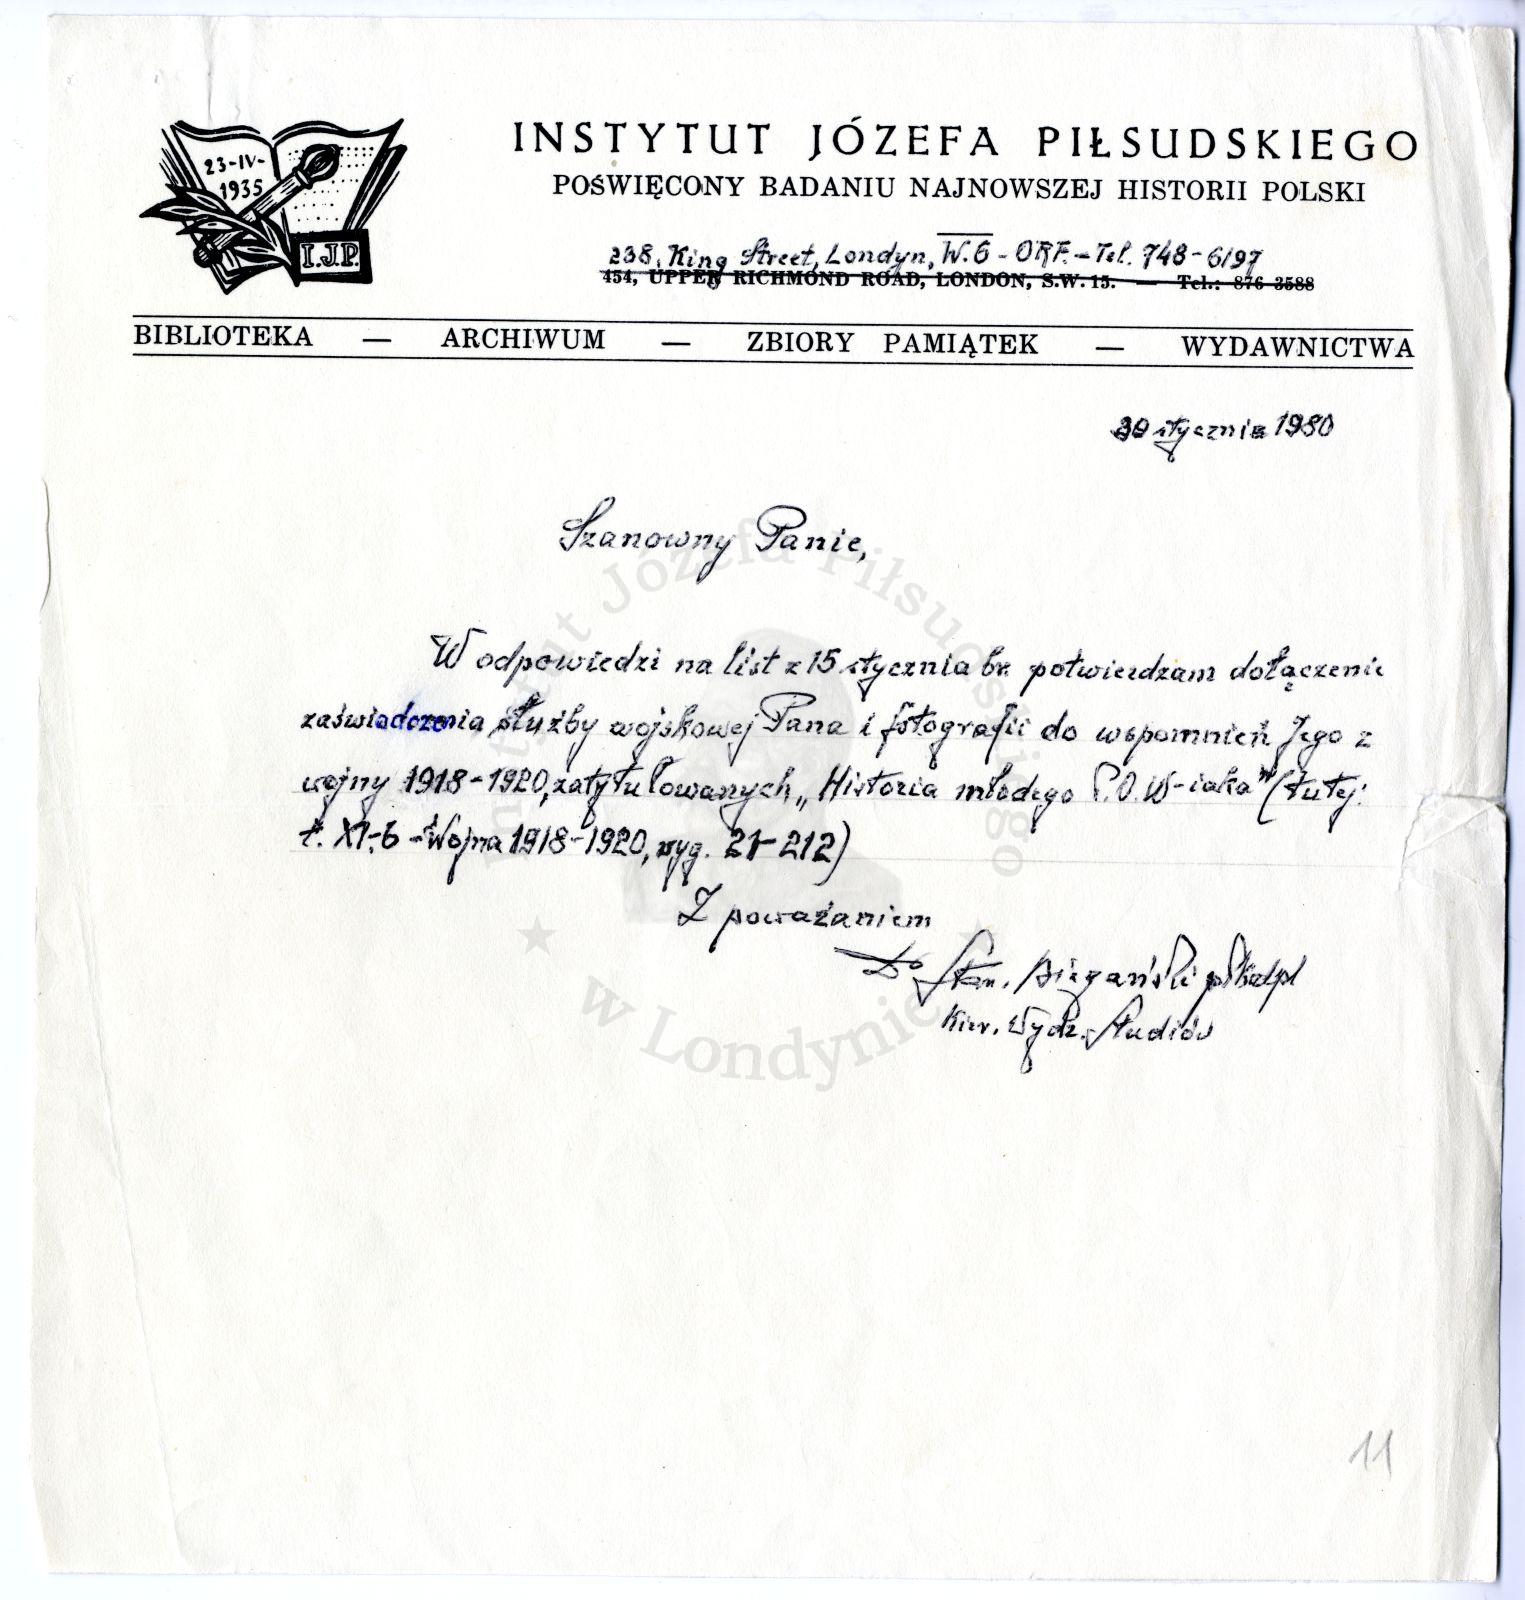 23-IV-
1935
I.J.P.
INSTYTUT JÓZEFA PIŁSUDSKIEGO
POŚWIĘCONY BADANIU NAJNOWSZEJ HISTORII POLSKI
238, King Street, Londyn, W.6 - ORF. - Tel. 748-6197
454, UPPER RICHMOND ROAD, LONDON, S.W. 15. — Tel.: 876 3588
BIBLIOTEKA — ARCHIWUM — ZBIORY PAMIĄTEK — WYDAWNICTWA
30 stycznia 1980
Szanowny Panie,
W odpowiedzi na list z 15 stycznia br. potwierdzam dołączenie
zaświadczenia służby wojskowej Pana i fotografii do wspomnień Jego z
wojny 1918-1920, zatytułowanych „Historia młodego P.O.W-iaka" (tutej:
t. XI-6 - Wojna 1918-1920, syg. 21-212)
Z poważaniem
Stan. Biegański
Kier. Wydz. Studiów
Instytut Józefa Piłsudskiego
w Londynie
11